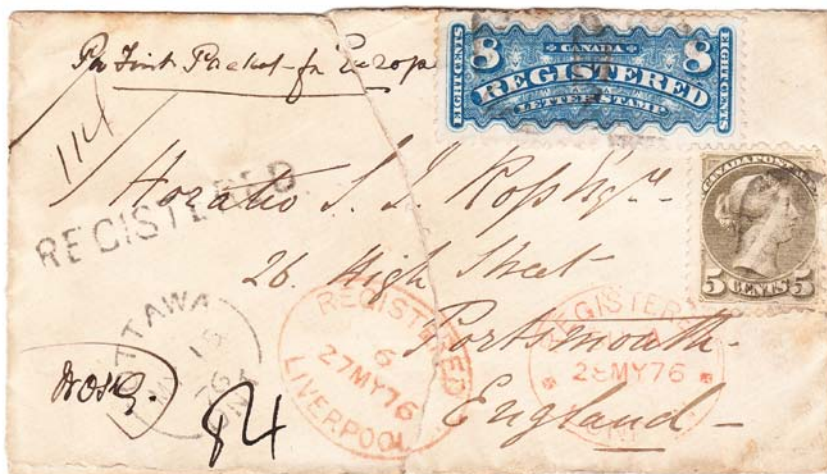 Per First Packet for Europe
8 CANADA 8
EIGHT CENTS REGISTERED EIGHT CENTS
LETTER STAMP
114
CANADA POSTAGE
5 CENTS 5
REGISTERED
Horatio S. J. Ross Esqre
26 High Street
Portsmouth
England
OTTAWA
MY 15
76
ONT
REGISTERED
6
27 MY 76
LIVERPOOL
REGISTERED
28 MY 76
84